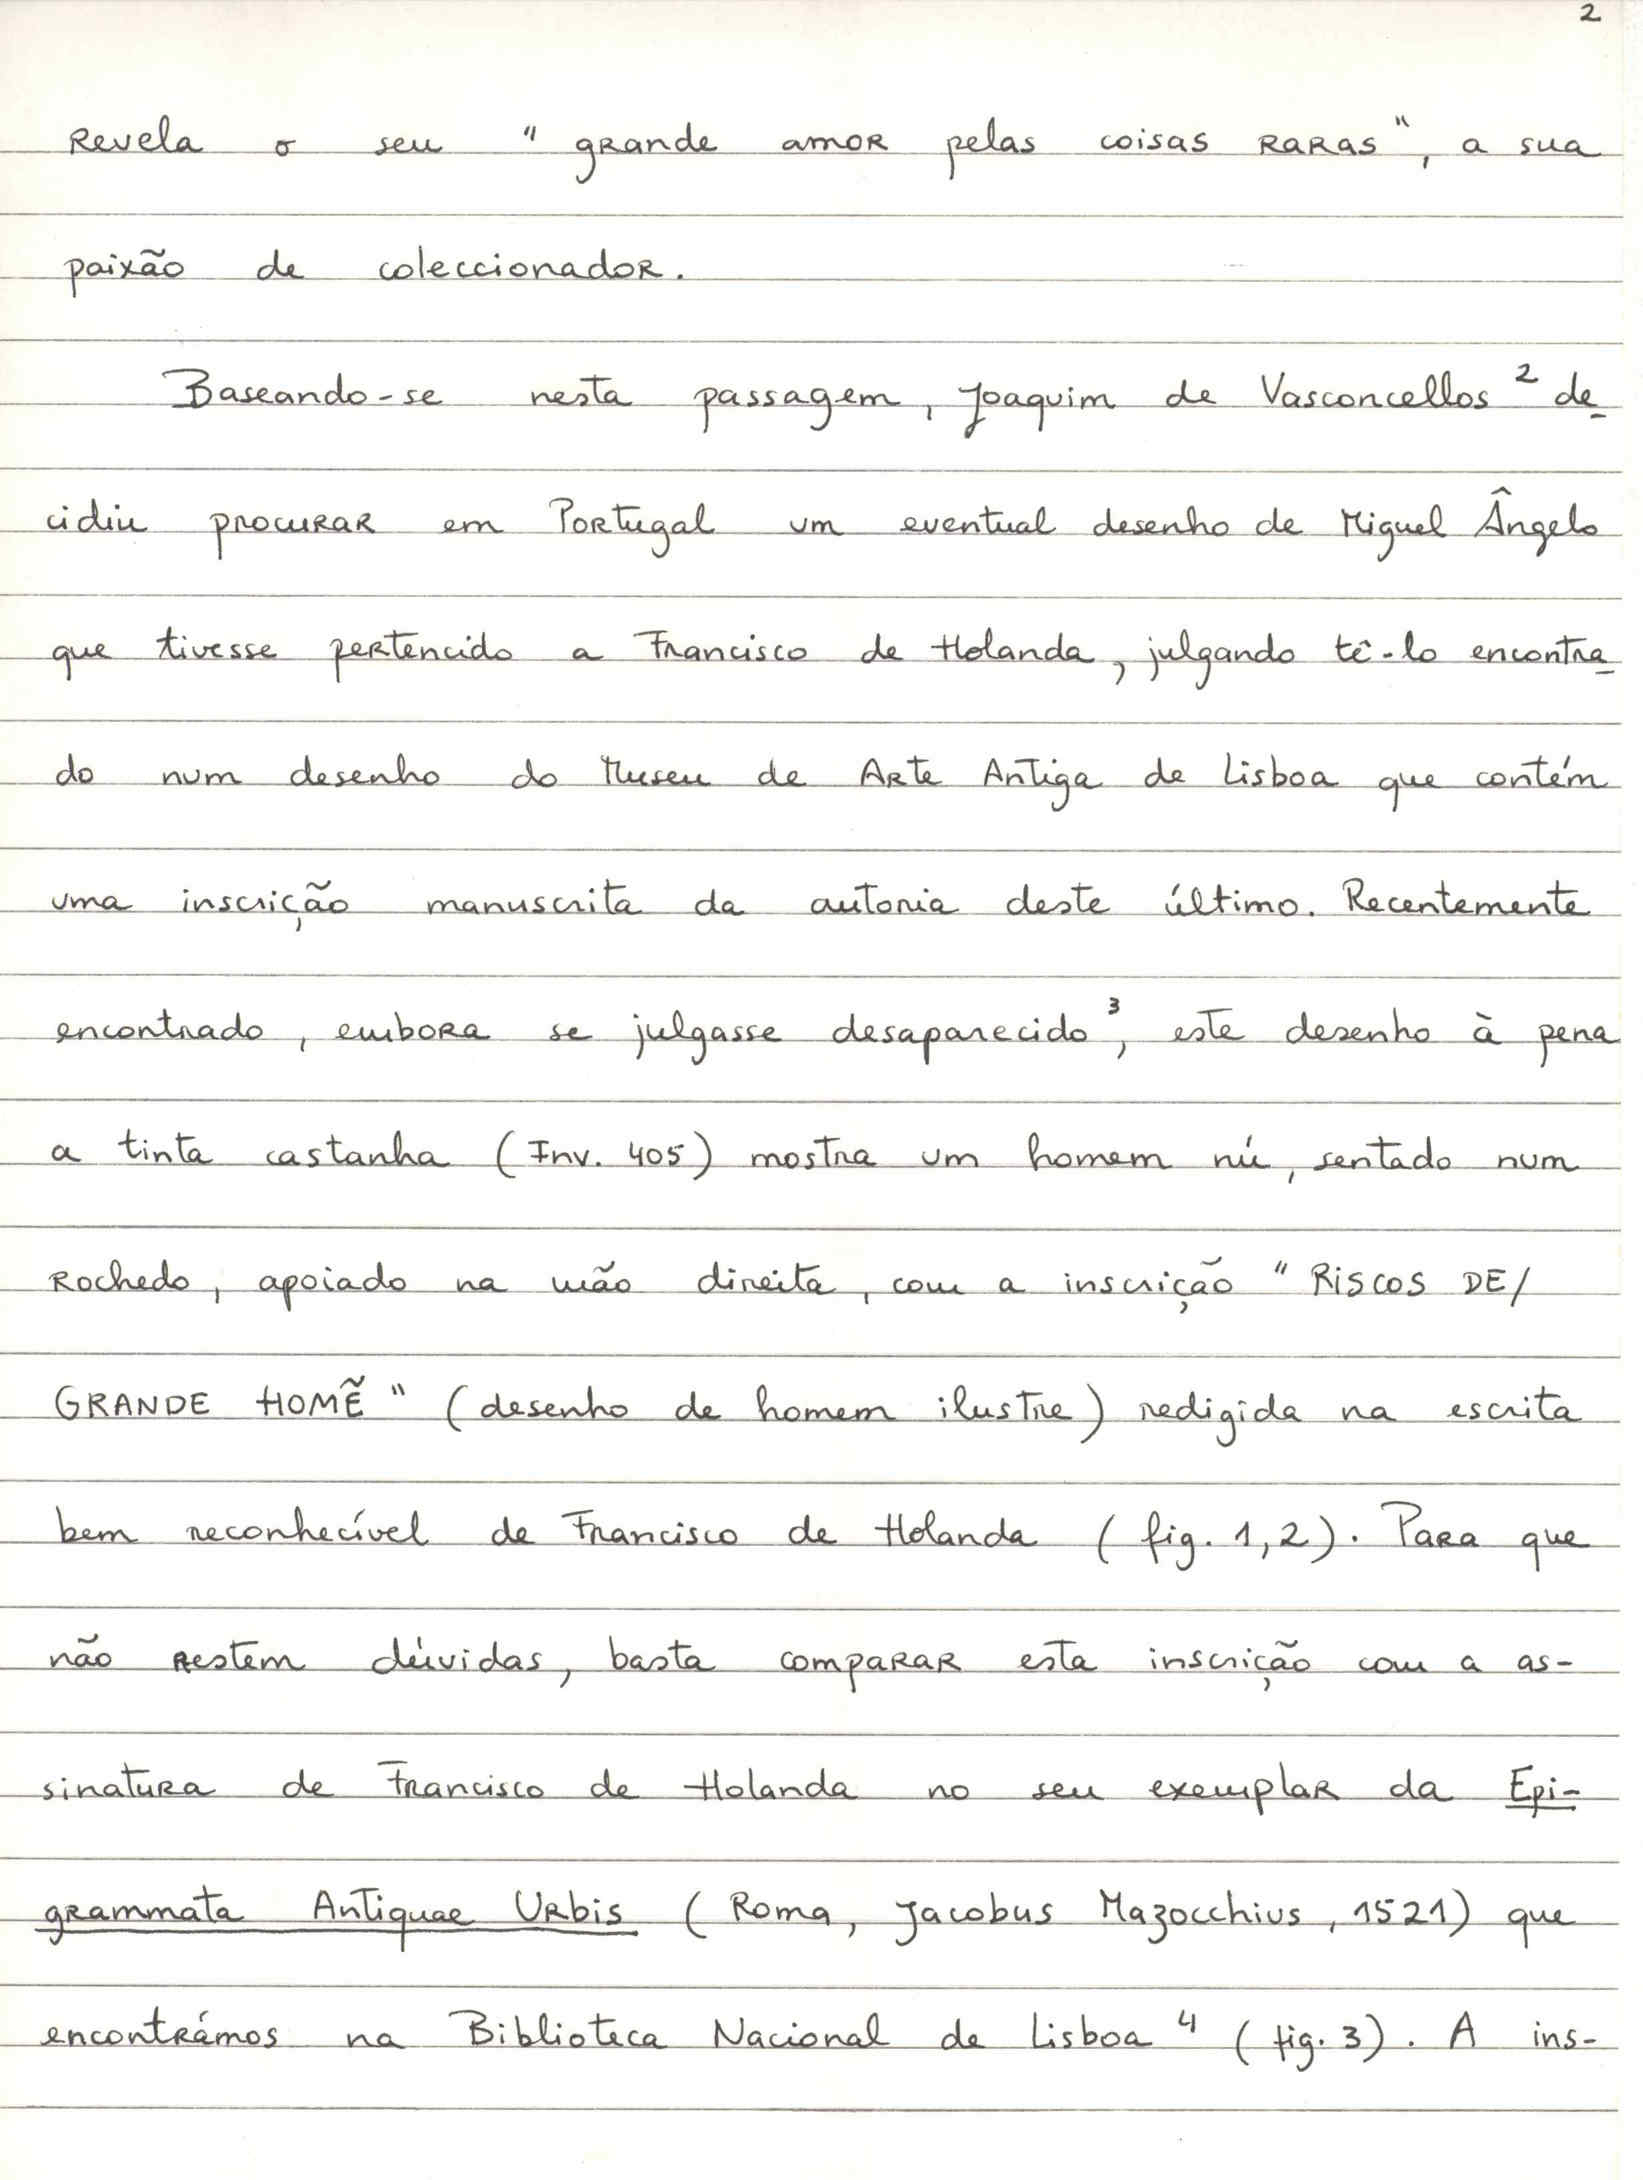 2
Revela o seu "grande amor pelas coisas raras", a sua
paixão de coleccionador.
Baseando-se nesta passagem, Joaquim de Vasconcellos ² de
cidiu procurar em Portugal um eventual desenho de Miguel Ângelo
que tivesse pertencido a Francisco de Holanda, julgando tê-lo encontra
do num desenho do Museu de Arte Antiga de Lisboa que contém
uma inscrição manuscrita da autoria deste último. Recentemente
encontrado, embora se julgasse desaparecido ³, este desenho à pena
a tinta castanha (Inv. 405) mostra um homem nú, sentado num
Rochedo, apoiado na mão direita, com a inscrição "RISCOS DE/
GRANDE HOMẼ" (desenho de homem ilustre) redigida na escrita
bem reconhecível de Francisco de Holanda (fig. 1,2). Para que
não restem dúvidas, basta comparar esta inscrição com a as-
sinatura de Francisco de Holanda no seu exemplar da Epi-
grammata Antiquae Urbis (Roma, Jacobus Mazocchius, 1521) que
encontrámos na Biblioteca Nacional de Lisboa ⁴ (fig. 3). A ins-